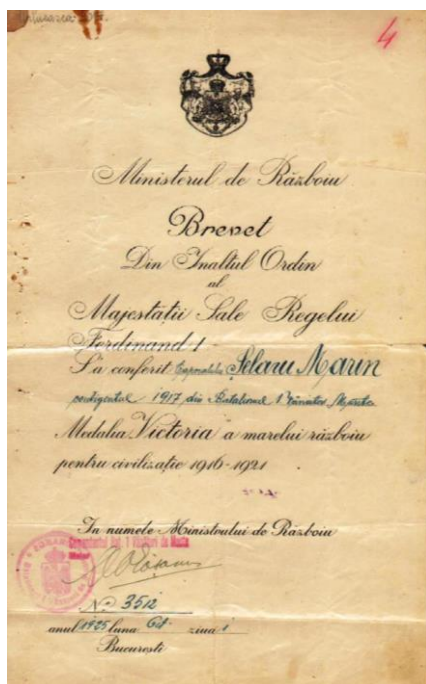 4
Ministerul de Războiu
Brevet
Din Inaltul Ordin
al
Majestatii Sale Regelui
Ferdinand I
S'a conferit Caporalului Șelaru Marin
contigentul 1917 din Batalionul 1 Vânători
Medalia Victoria a marelui războiu
pentru civilizație 1916-1921
In numele Ministrului de Războiu
Comandantul Bat. 1 Vânători de Munte
No 3512
anul 1925 luna ziua 1
Bucuresti